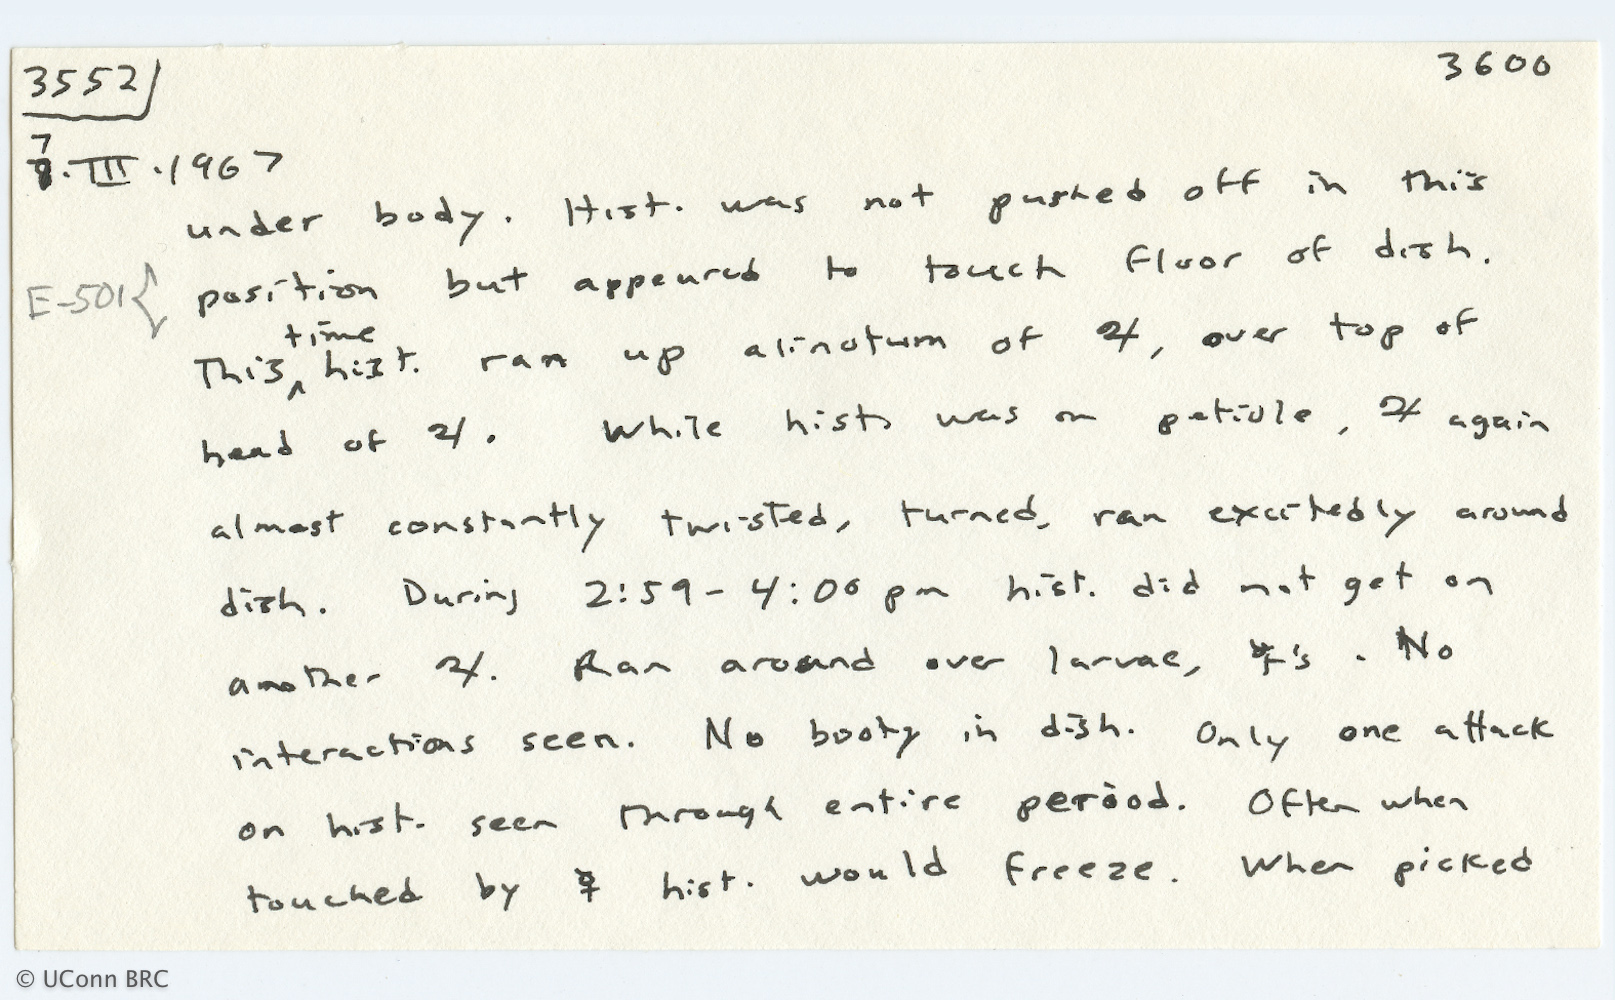 3552 3600
7.III.1967
under body. Hist. was not pushed off in this
E-501{ position but appeared to touch floor of dish.
This time hist. ran up alinotum of ♃, over top of
head of ♃. While hist. was on petiole, ♃ again
almost constantly twisted, turned, ran excitedly around
dish. During 2:59-4:00 pm hist. did not get on
another ♃. Ran around over larvae, 's. No
interactions seen. No booty in dish. Only one attack
on hist. seen through entire period. Often when
touched by hist. would freeze. When picked
© UConn BRC